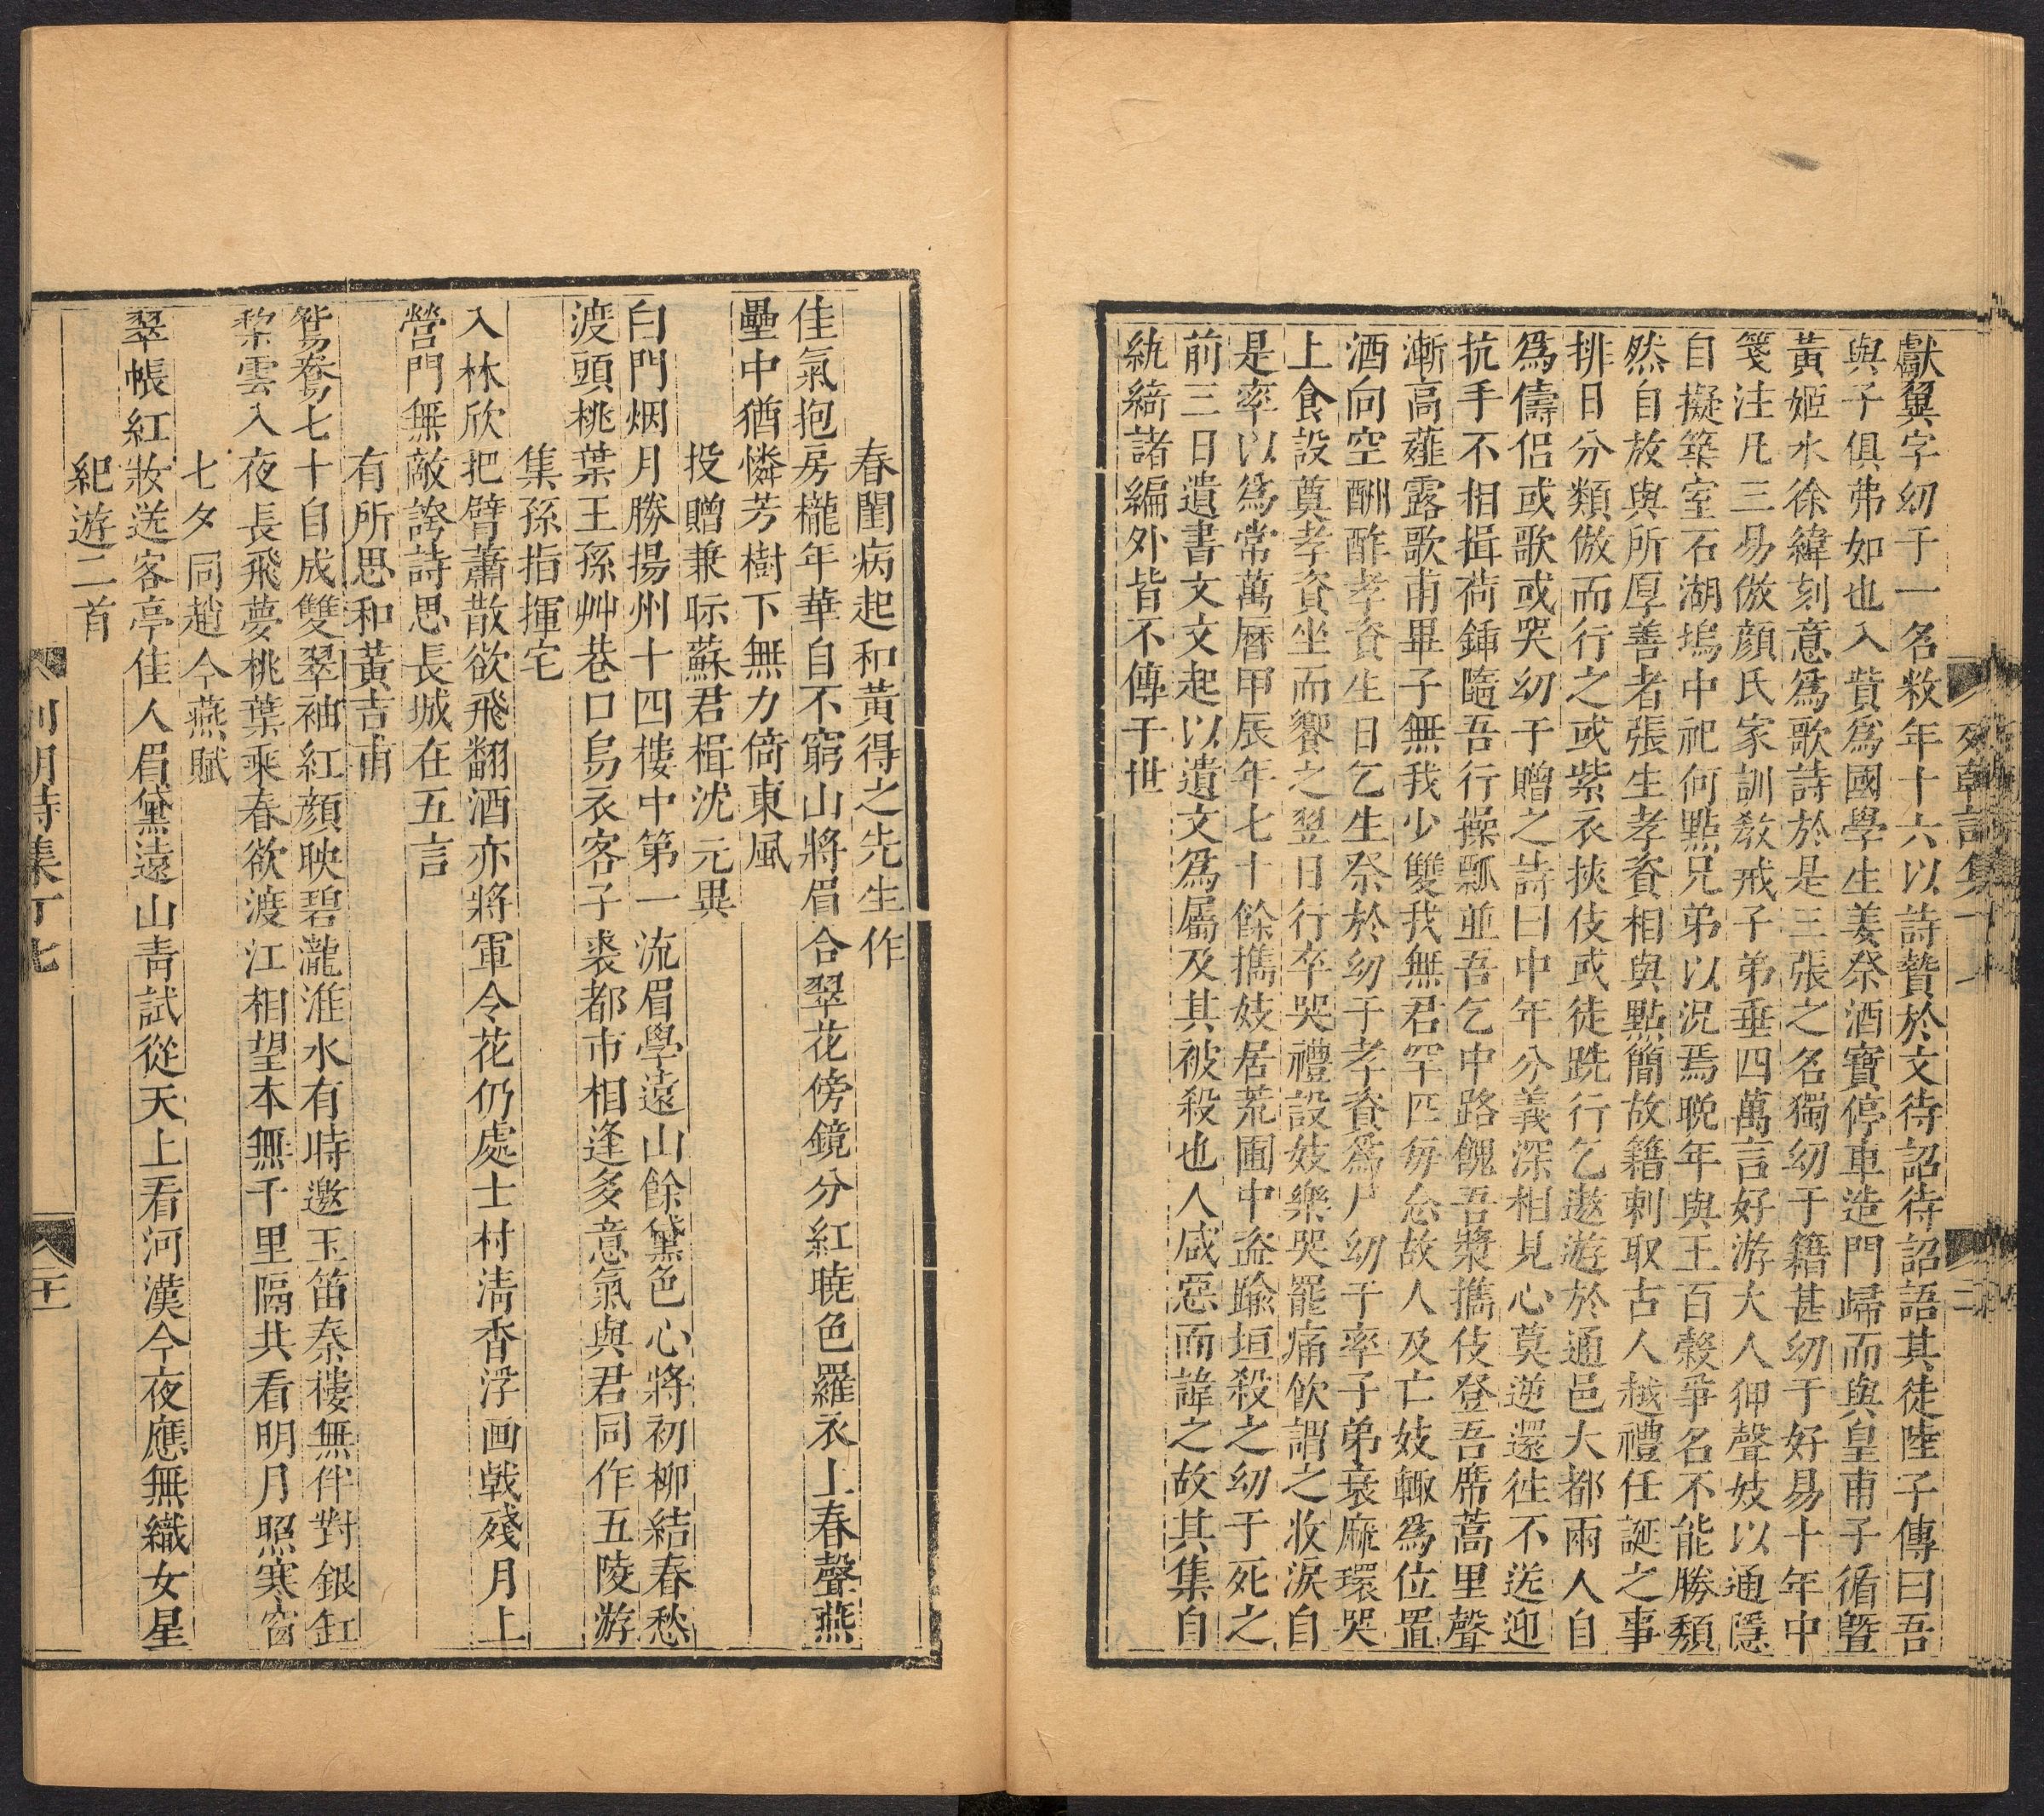 獻翼字幼于一名敉年十六以詩贄於文待詔待詔語其徒陸子傳曰吾
與子俱弗如也入貲爲國學生姜祭酒寶停車造門歸而與皇甫子循曁
黃姬水徐緯刻意爲歌詩於是三張之名獨幼于籍甚幼于好易十年中
箋注凡三易倣顏氏家訓敎戒子弟垂四萬言好游大人狎聲妓以通隱
自擬築室石湖塢中祀何點兄弟以況焉晚年與王百穀爭名不能勝頹
然自放與所厚善者張生孝資相與點簡故籍刺取古人越禮任誕之事
排日分類倣而行之或紫衣挾伎或徒跣行乞遨遊於通邑大都兩人自
爲儔侶或歌或哭幼于贈之詩曰中年分義深相見心莫逆還徃不送迎
抗手不相揖荷鍤隨吾行操瓢並吾乞中路餽吾漿擕伎登吾席蒿里聲
漸高薤露歌甫畢子無我少雙我無君罕匹每忩故人及亡妓輙爲位置
酒向空酬酢孝資生日乞生祭於幼于孝資爲尸幼子率子弟衰麻環哭
上食設奠孝資坐而饗之翌日行卒哭禮設妓樂哭罷痛飮謂之收淚自
是率以爲常萬曆甲辰年七十餘擕妓居荒圃中盜踰垣殺之幼于死之
前三日遺書文文起以遺文爲屬及其被殺也人咸惡而諱之故其集自
紈綺諸編外皆不傳于世
春閨病起和黃得之先生作
佳氣抱房櫳年華自不窮山將眉合翠花傍鏡分紅曉色羅衣上春聲燕
壘中猶憐芳樹下無力倚東風
投贈兼眎蘇君楫沈元異
白門烟月勝揚州十四樓中第一流眉學遠山餘黛色心將初柳結春愁
渡頭桃葉王孫艸巷口烏衣客子裘都市相逢多意氣與君同作五陵游
集孫指揮宅
入林欣把臂蕭散欲飛翻酒亦將軍令花仍處士村淸香浮画戟殘月上
營門無敵誇詩思長城在五言
有所思和黃吉甫
鴛鴦七十自成雙翠袖紅顏映碧瀧淮水有時邀玉笛秦樓無伴對銀缸
梨雲入夜長飛夢桃葉乘春欲渡江相望本無千里隔共看明月照寒窗
七夕同趙今燕賦
翠帳紅妝送客亭佳人眉黛遠山靑試從天上看河漢今夜應無織女星
紀遊二首
列朝詩集丁七